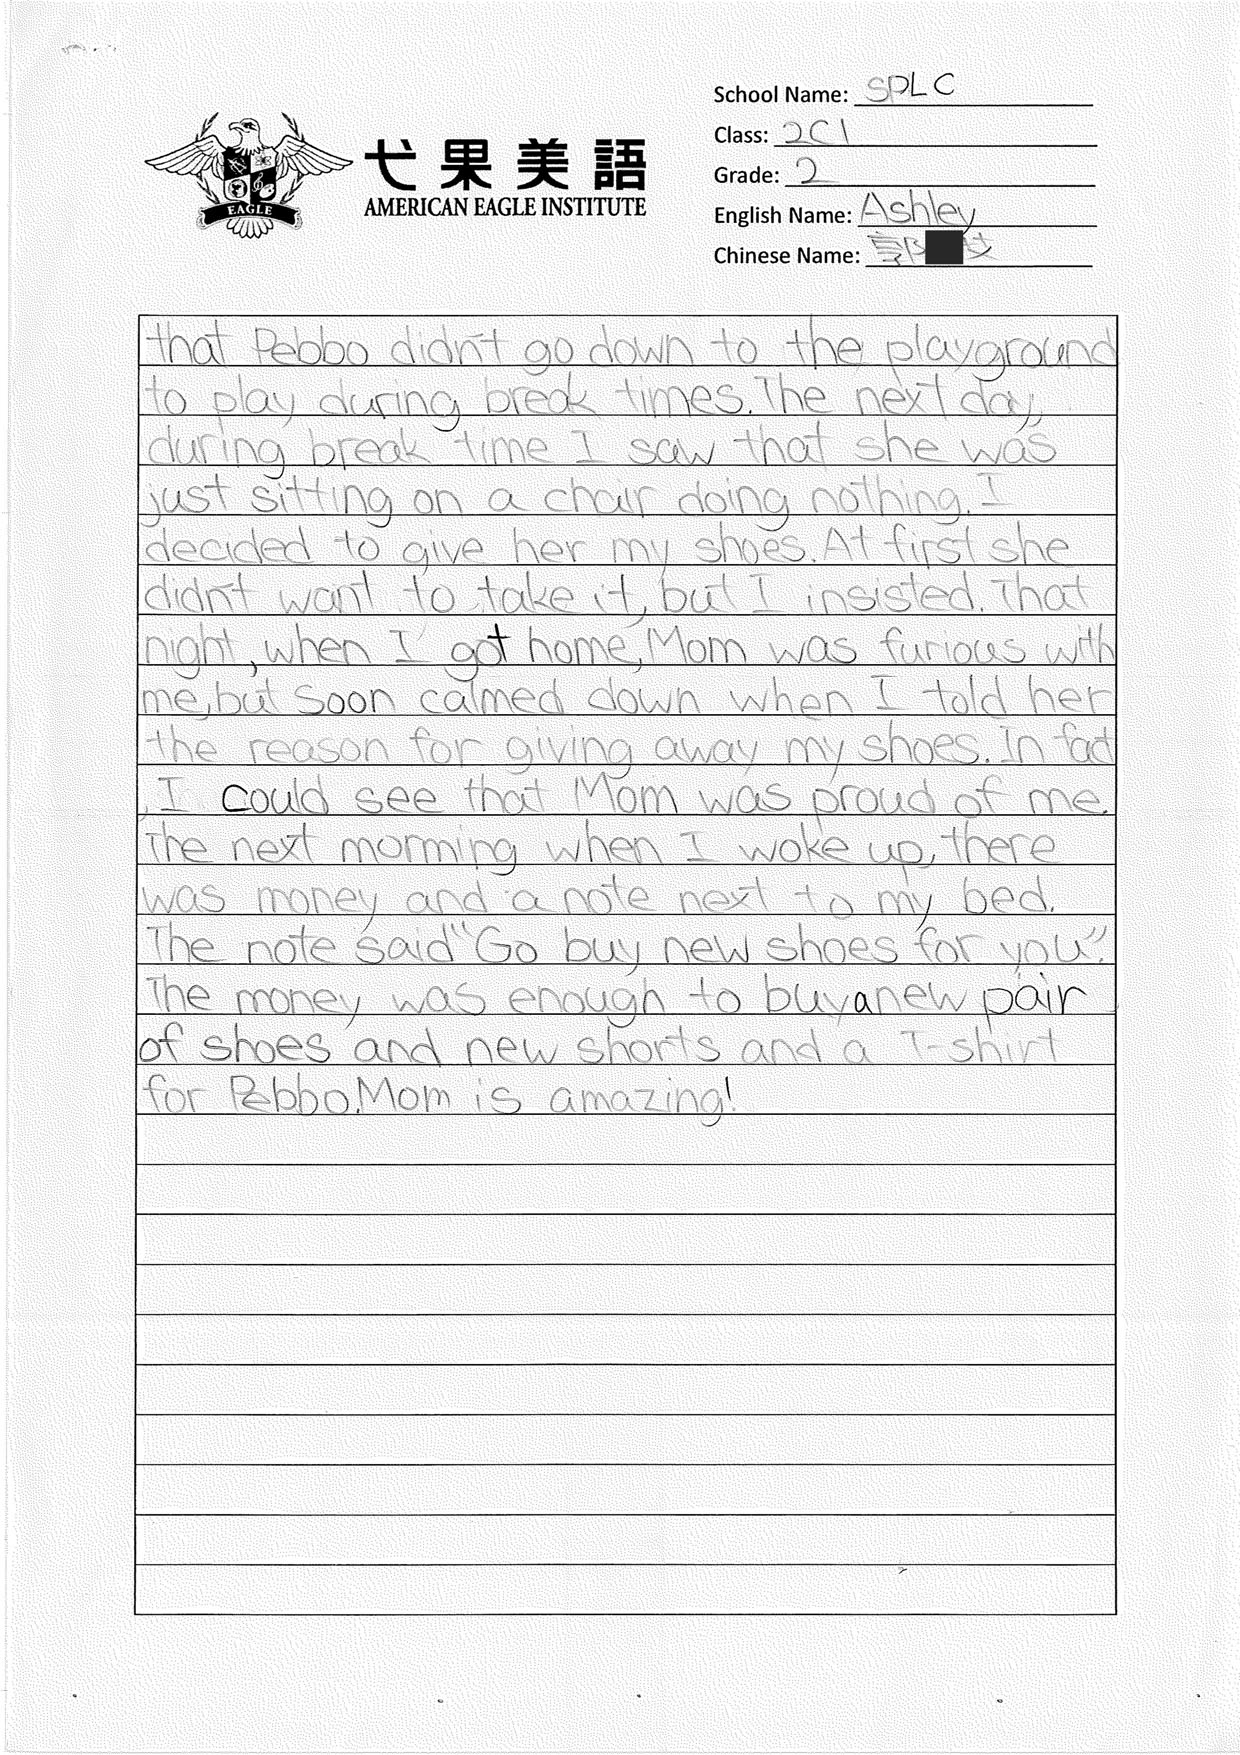 School Name: SPLC
Class: 2C1
Grade: 2
English Name: Ashley
Chinese Name: 郭
EAGLE
弋果美語
AMERICAN EAGLE INSTITUTE
that Pebbo didn't go down to the playground
to play during break times. The next day,
during break time I saw that she was
just sitting on a chair doing nothing. I
decided to give her my shoes. At first she
didn't want to take it, but I insisted. That
night, when I got home, Mom was furious with
me, but soon calmed down when I told her
the reason for giving away my shoes. In fact
, I could see that Mom was proud of me.
The next morning when I woke up, there
was money and a note next to my bed.
The note said "Go buy new shoes for you".
The money was enough to buy a new pair
of shoes and new shorts and a T-shirt
for Pebbo. Mom is amazing!